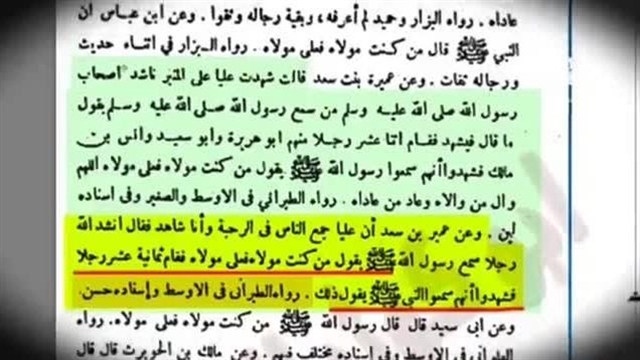 عاداه . رواه البزار وحميد لم أعرفه ، وبقية رجاله وثقوا . وعن ابن عباس ان
النبي ﷺ قال من كنت مولاه فعلى مولاه . رواه البزار فى اثناء حديث
ورجاله ثقات . وعن عميرة بنت سعد قالت شهدت عليا على المنبر ناشد اصحاب
رسول الله صلى الله عليه وسلم من سمع رسول الله صلى الله عليه وسلم يقول
ما قال فيشهد فقام اثنا عشر رجلا منهم ابو هريرة وابو سعيد وانس بن
مالك فشهدوا أنهم سمعوا رسول الله ﷺ يقول من كنت مولاه فعلى مولاه اللهم
وال من والاه وعاد من عاداه . رواه الطبرانى فى الاوسط والصغير وفى اسناده
لين . وعن عمير بن سعد أن عليا جمع الناس فى الرحبة وأنا شاهد فقال انشد الله
رجلا سمع رسول الله ﷺ يقول من كنت مولاه فعلى مولاه فقام ثمانية عشر رجلا
فشهدوا أنهم سمعوا النبي ﷺ يقول ذلك . رواه الطبرانى فى الاوسط وإسناده حسن .
وعن ابى سعيد قال قال رسول الله ﷺ من كنت مولاه فعلى مولاه . رواه
الطبرانى فى الاوسط وفى إسناده مختلف فيهم . وعن مالك بن الحويرث قال قال